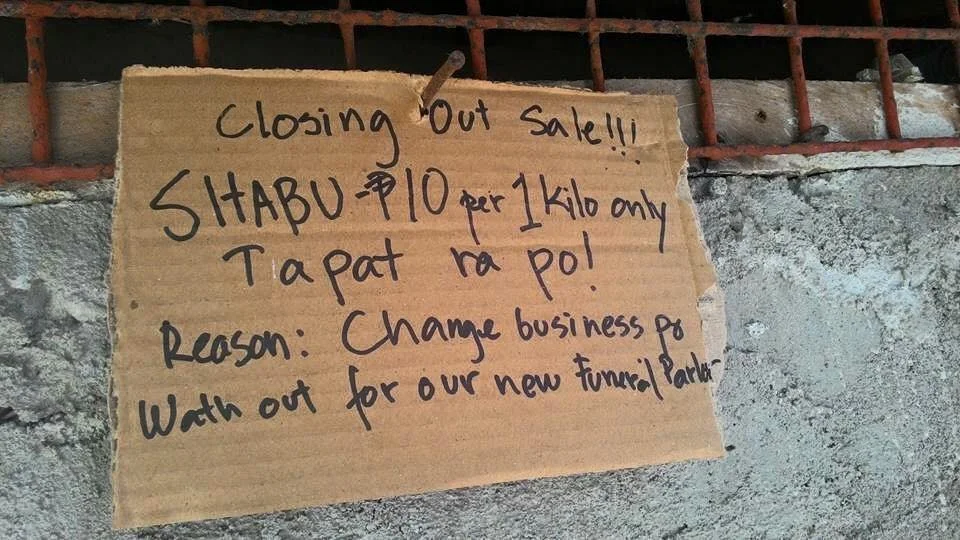 Closing Out Sale!!!
SHABU - ₱10 per 1 Kilo only
Tapat na po!
Reason: Change business po
Wath out for our new Funeral Parlor